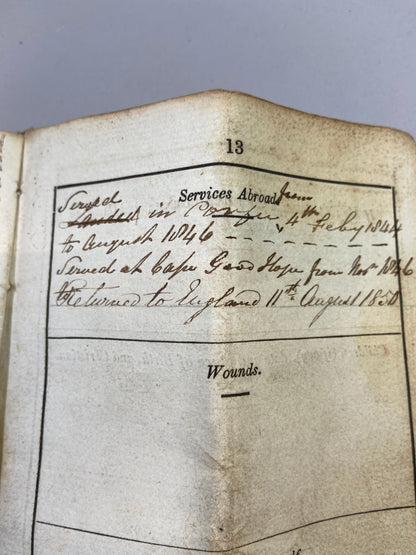 13
Services Abroad
Served from
Landed in Corfu 4th Feby 1844
to August 1846
Served at Cape Good Hope from Novr 1846
to Returned to England 11th August 1850
Wounds.